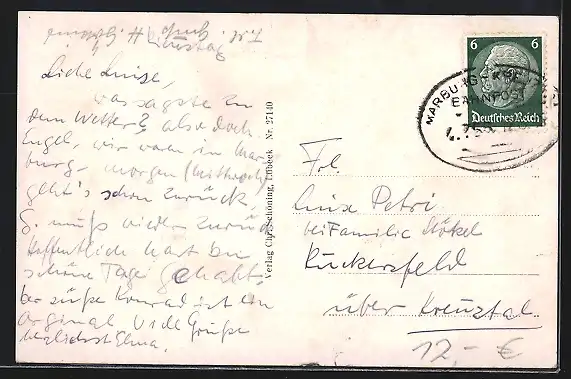 Dienstag
Liebe Luise,
was sagste zu
dem Wetter? also doch
Engel, wir waren in Mar-
burg, morgen (Mittwoch)
geht's schon zurück,
G. muß wieder zurück
Hoffentlich hast du
schöne Tage gehabt,
der süße Konrad ist ein
Original. Viele Grüße
herzlichst Elma.
Verlag Chr. Schöning, Lübeck Nr. 27140
6 6
Deutsches Reich
MARBURG
BAHNPOST
Frl.
Luise Petri
bei Familie Stökel
Rückersfeld
über Kreuztal
12,- €